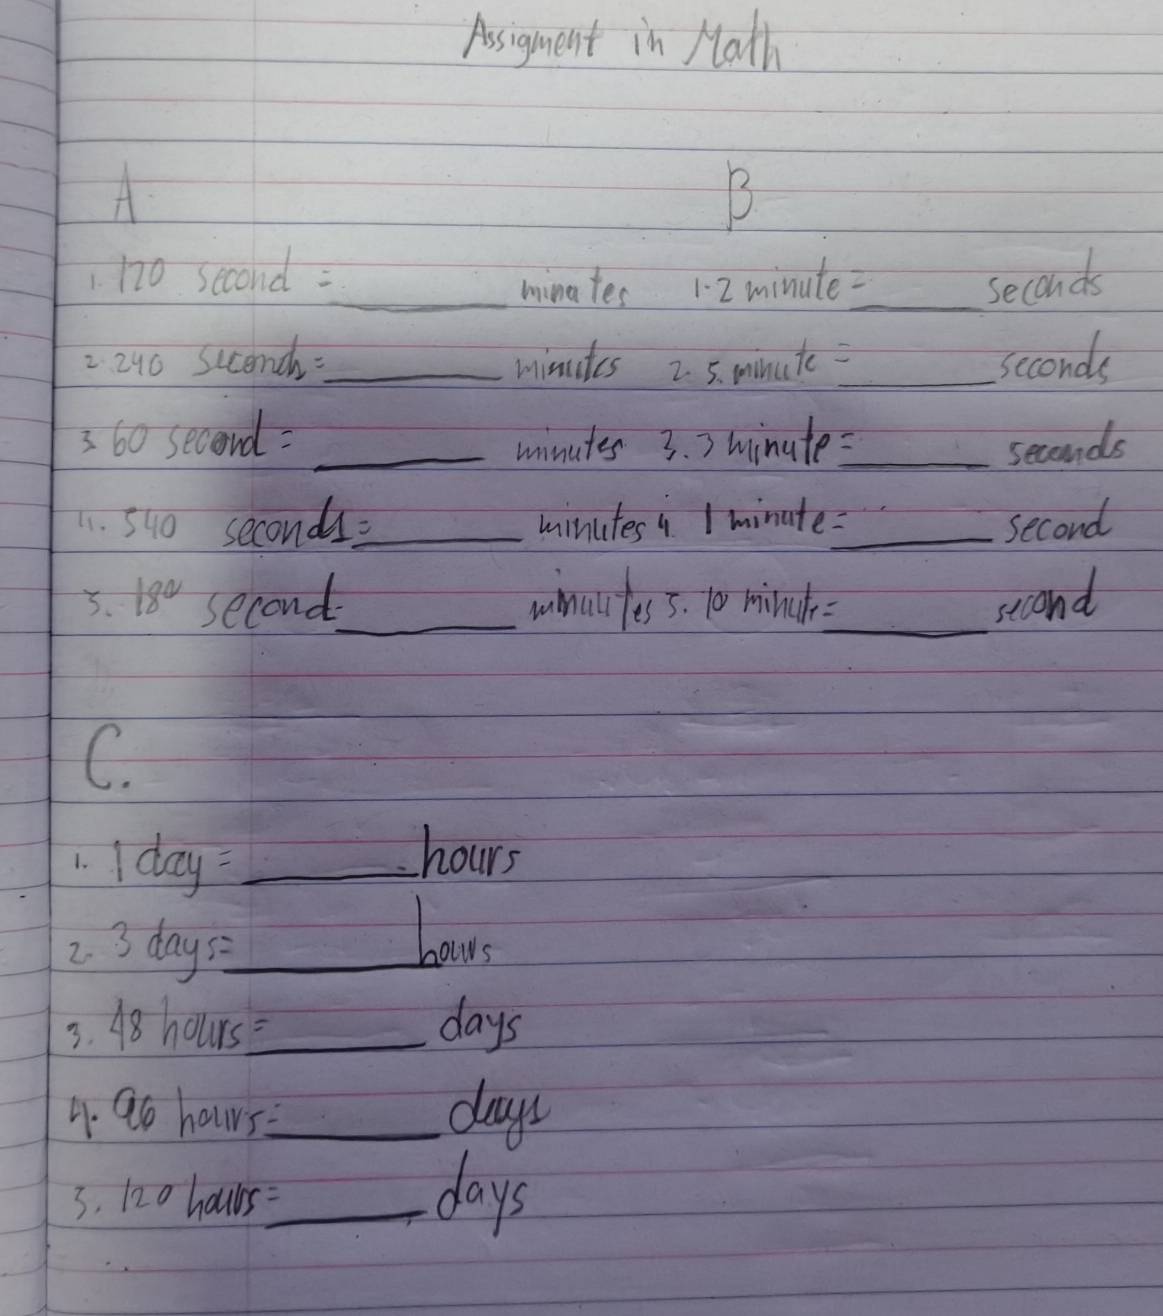 Assigment in Math
A B
1. 120 second = ______ minates 1. 2 minute = ______ seconds
2. 240 seconds = ______ minutes 2. 5. minute = ______ seconds
3. 60 second = ______ minutes 3. 3 minute = ______ seconds
4. 540 seconds = ______ minutes 4. 1 minute = ______ second
5. 180 second = ______ minuutes 5. 10 minute = ______ second
C.
1. 1 day = ______ hours
2. 3 days = ______ hours
3. 48 hours = ______ days
4. 96 hours = ______ days
5. 120 hours = ______ days